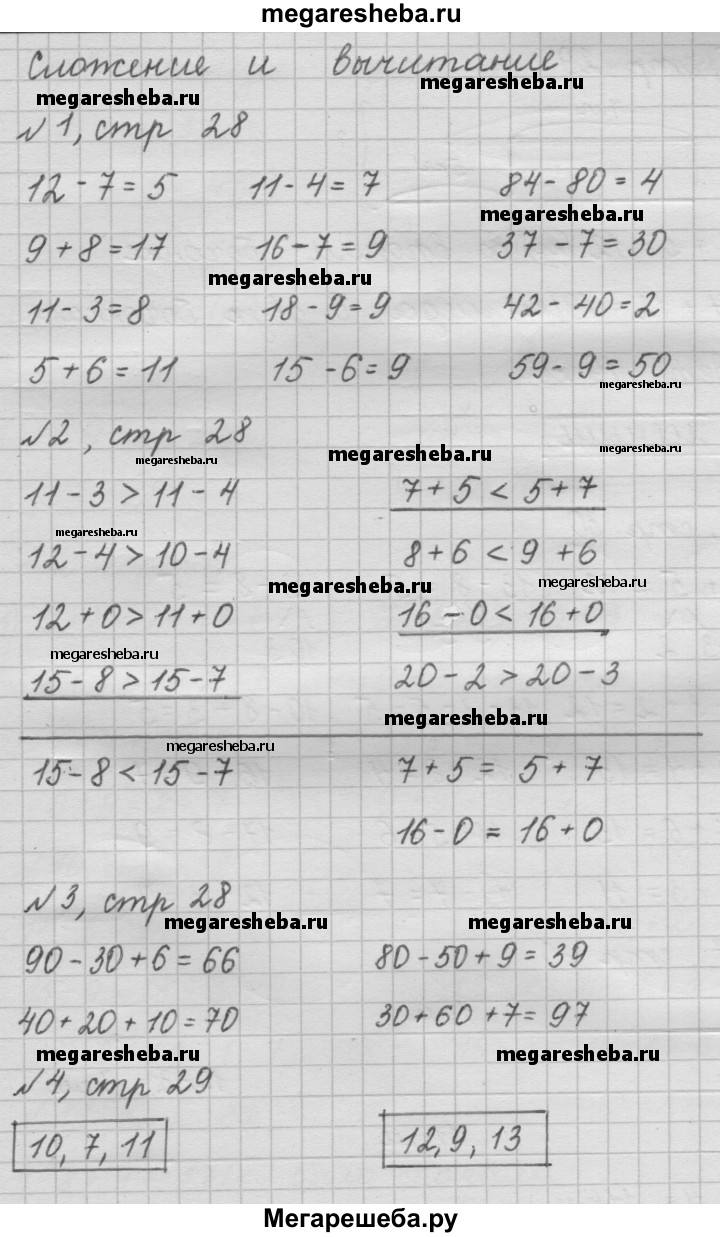 megaresheba.ru
Сложение и вычитание
megaresheba.ru
megaresheba.ru
№1, стр 28
12 - 7 = 5 11 - 4 = 7 84 - 80 = 4
megaresheba.ru
9 + 8 = 17 16 - 7 = 9 37 - 7 = 30
megaresheba.ru
11 - 3 = 8 18 - 9 = 9 42 - 40 = 2
5 + 6 = 11 15 - 6 = 9 59 - 9 = 50
megaresheba.ru
№2, стр 28
megaresheba.ru
megaresheba.ru
megaresheba.ru
11 - 3 > 11 - 4 7 + 5 < 5 + 7
megaresheba.ru
12 - 4 > 10 - 4 8 + 6 < 9 + 6
megaresheba.ru
megaresheba.ru
12 + 0 > 11 + 0 16 - 0 < 16 + 0
megaresheba.ru
15 - 8 > 15 - 7 20 - 2 > 20 - 3
megaresheba.ru
megaresheba.ru
15 - 8 < 15 - 7 7 + 5 = 5 + 7
16 - 0 = 16 + 0
№3, стр 28
megaresheba.ru
megaresheba.ru
90 - 30 + 6 = 66 80 - 50 + 9 = 39
40 + 20 + 10 = 70 30 + 60 + 7 = 97
megaresheba.ru
megaresheba.ru
№4, стр 29
10, 7, 11 12, 9, 13
Мегарешеба.ру